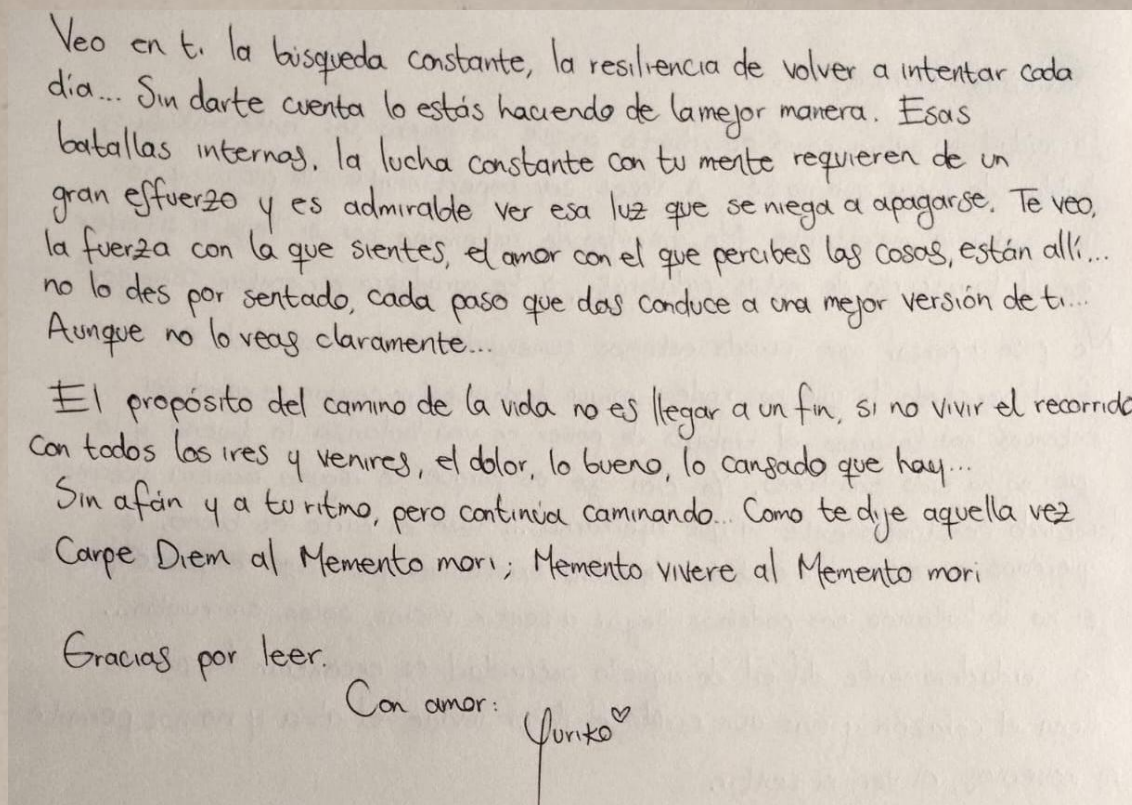 Veo en ti la búsqueda constante, la resiliencia de volver a intentar cada
día... Sin darte cuenta lo estás haciendo de la mejor manera. Esas
batallas internas, la lucha constante con tu mente requieren de un
gran effuerzo y es admirable ver esa luz que se niega a apagarse. Te veo,
la fuerza con la que sientes, el amor con el que percibes las cosas, están allí...
no lo des por sentado, cada paso que das conduce a una mejor versión de ti...
Aunque no lo veas claramente...
El propósito del camino de la vida no es llegar a un fin, si no vivir el recorrido
con todos los ires y venires, el dolor, lo bueno, lo cansado que hay...
Sin afán y a tu ritmo, pero continúa caminando... Como te dije aquella vez
Carpe Diem al Memento mori; Memento vivere al Memento mori
Gracias por leer.
Con amor:
Yuriko